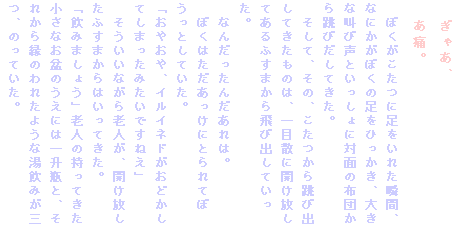 ぎゃあ、
あ痛。
ぼくがこたつに足をいれた瞬間、
なにかがぼくの足をひっかき、大き
な叫び声といっしょに対面の布団か
ら跳びだしてきた。
そして、その、こたつから跳び出
してきたものは、一目散に開け放し
てあるふすまから飛び出していっ
た。
なんだったんだあれは。
ぼくはただあっけにとられてぼ
うっとしていた。
「おやおや、イルイネドがおどかし
てしまったみたいですねえ」
そういいながら老人が、開け放し
たふすまからはいってきた。
「飲みましょう」老人の持ってきた
小さなお盆のうえには一升瓶と、そ
れから縁のわれたような湯飲みが三
つ、のっていた。